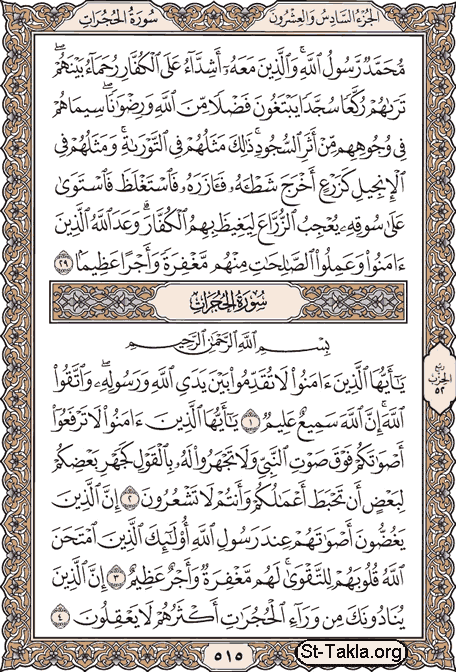 سُورَةُ الحُجُرَاتِ
الجُزْءُ السَّادِسُ وَالعِشْرُونَ
مُّحَمَّدٌ رَّسُولُ ٱللَّهِ ۚ وَٱلَّذِينَ مَعَهُۥٓ أَشِدَّآءُ عَلَى ٱلْكُفَّارِ رُحَمَآءُ بَيْنَهُمْ ۖ
تَرَىٰهُمْ رُكَّعًا سُجَّدًا يَبْتَغُونَ فَضْلًا مِّنَ ٱللَّهِ وَرِضْوَٰنًا ۖ سِيمَاهُمْ
فِى وُجُوهِهِم مِّنْ أَثَرِ ٱلسُّجُودِ ۚ ذَٰلِكَ مَثَلُهُمْ فِى ٱلتَّوْرَىٰةِ ۚ وَمَثَلُهُمْ فِى
ٱلْإِنجِيلِ كَزَرْعٍ أَخْرَجَ شَطْـَٔهُۥ فَـَٔازَرَهُۥ فَٱسْتَغْلَظَ فَٱسْتَوَىٰ
عَلَىٰ سُوقِهِۦ يُعْجِبُ ٱلزُّرَّاعَ لِيَغِيظَ بِهِمُ ٱلْكُفَّارَ ۗ وَعَدَ ٱللَّهُ ٱلَّذِينَ
ءَامَنُوا۟ وَعَمِلُوا۟ ٱلصَّٰلِحَٰتِ مِنْهُم مَّغْفِرَةً وَأَجْرًا عَظِيمًۢا ٢٩
سُورَةُ الحُجُرَاتِ
بِسْمِ ٱللَّهِ ٱلرَّحْمَٰنِ ٱلرَّحِيمِ
يَٰٓأَيُّهَا ٱلَّذِينَ ءَامَنُوا۟ لَا تُقَدِّمُوا۟ بَيْنَ يَدَىِ ٱللَّهِ وَرَسُولِهِۦ ۖ وَٱتَّقُوا۟
ٱللَّهَ ۚ إِنَّ ٱللَّهَ سَمِيعٌ عَلِيمٌ ١ يَٰٓأَيُّهَا ٱلَّذِينَ ءَامَنُوا۟ لَا تَرْفَعُوٓا۟
أَصْوَٰتَكُمْ فَوْقَ صَوْتِ ٱلنَّبِىِّ وَلَا تَجْهَرُوا۟ لَهُۥ بِٱلْقَوْلِ كَجَهْرِ بَعْضِكُمْ
لِبَعْضٍ أَن تَحْبَطَ أَعْمَٰلُكُمْ وَأَنتُمْ لَا تَشْعُرُونَ ٢ إِنَّ ٱلَّذِينَ
يَغُضُّونَ أَصْوَٰتَهُمْ عِندَ رَسُولِ ٱللَّهِ أُو۟لَٰٓئِكَ ٱلَّذِينَ ٱمْتَحَنَ
ٱللَّهُ قُلُوبَهُمْ لِلتَّقْوَىٰ ۚ لَهُم مَّغْفِرَةٌ وَأَجْرٌ عَظِيمٌ ٣ إِنَّ ٱلَّذِينَ
يُنَادُونَكَ مِن وَرَآءِ ٱلْحُجُرَٰتِ أَكْثَرُهُمْ لَا يَعْقِلُونَ ٤
ربع
الحزب
٥٢
٥١٥
St-Takla.org